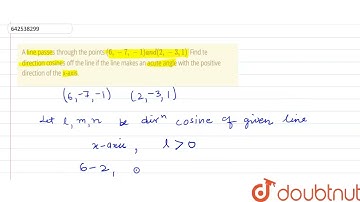 642538299
A line passes through the points (6, − 7, − 1)and(2, − 3, 1) Find te
direction cosines off the line if the line makes an acute angle with the positive
direction of the x-axis.
(6,-7,-1) (2,-3,1)
Let l, m, n be dirⁿ cosine of given line
x-axis , l > 0
6-2,
doubtnut